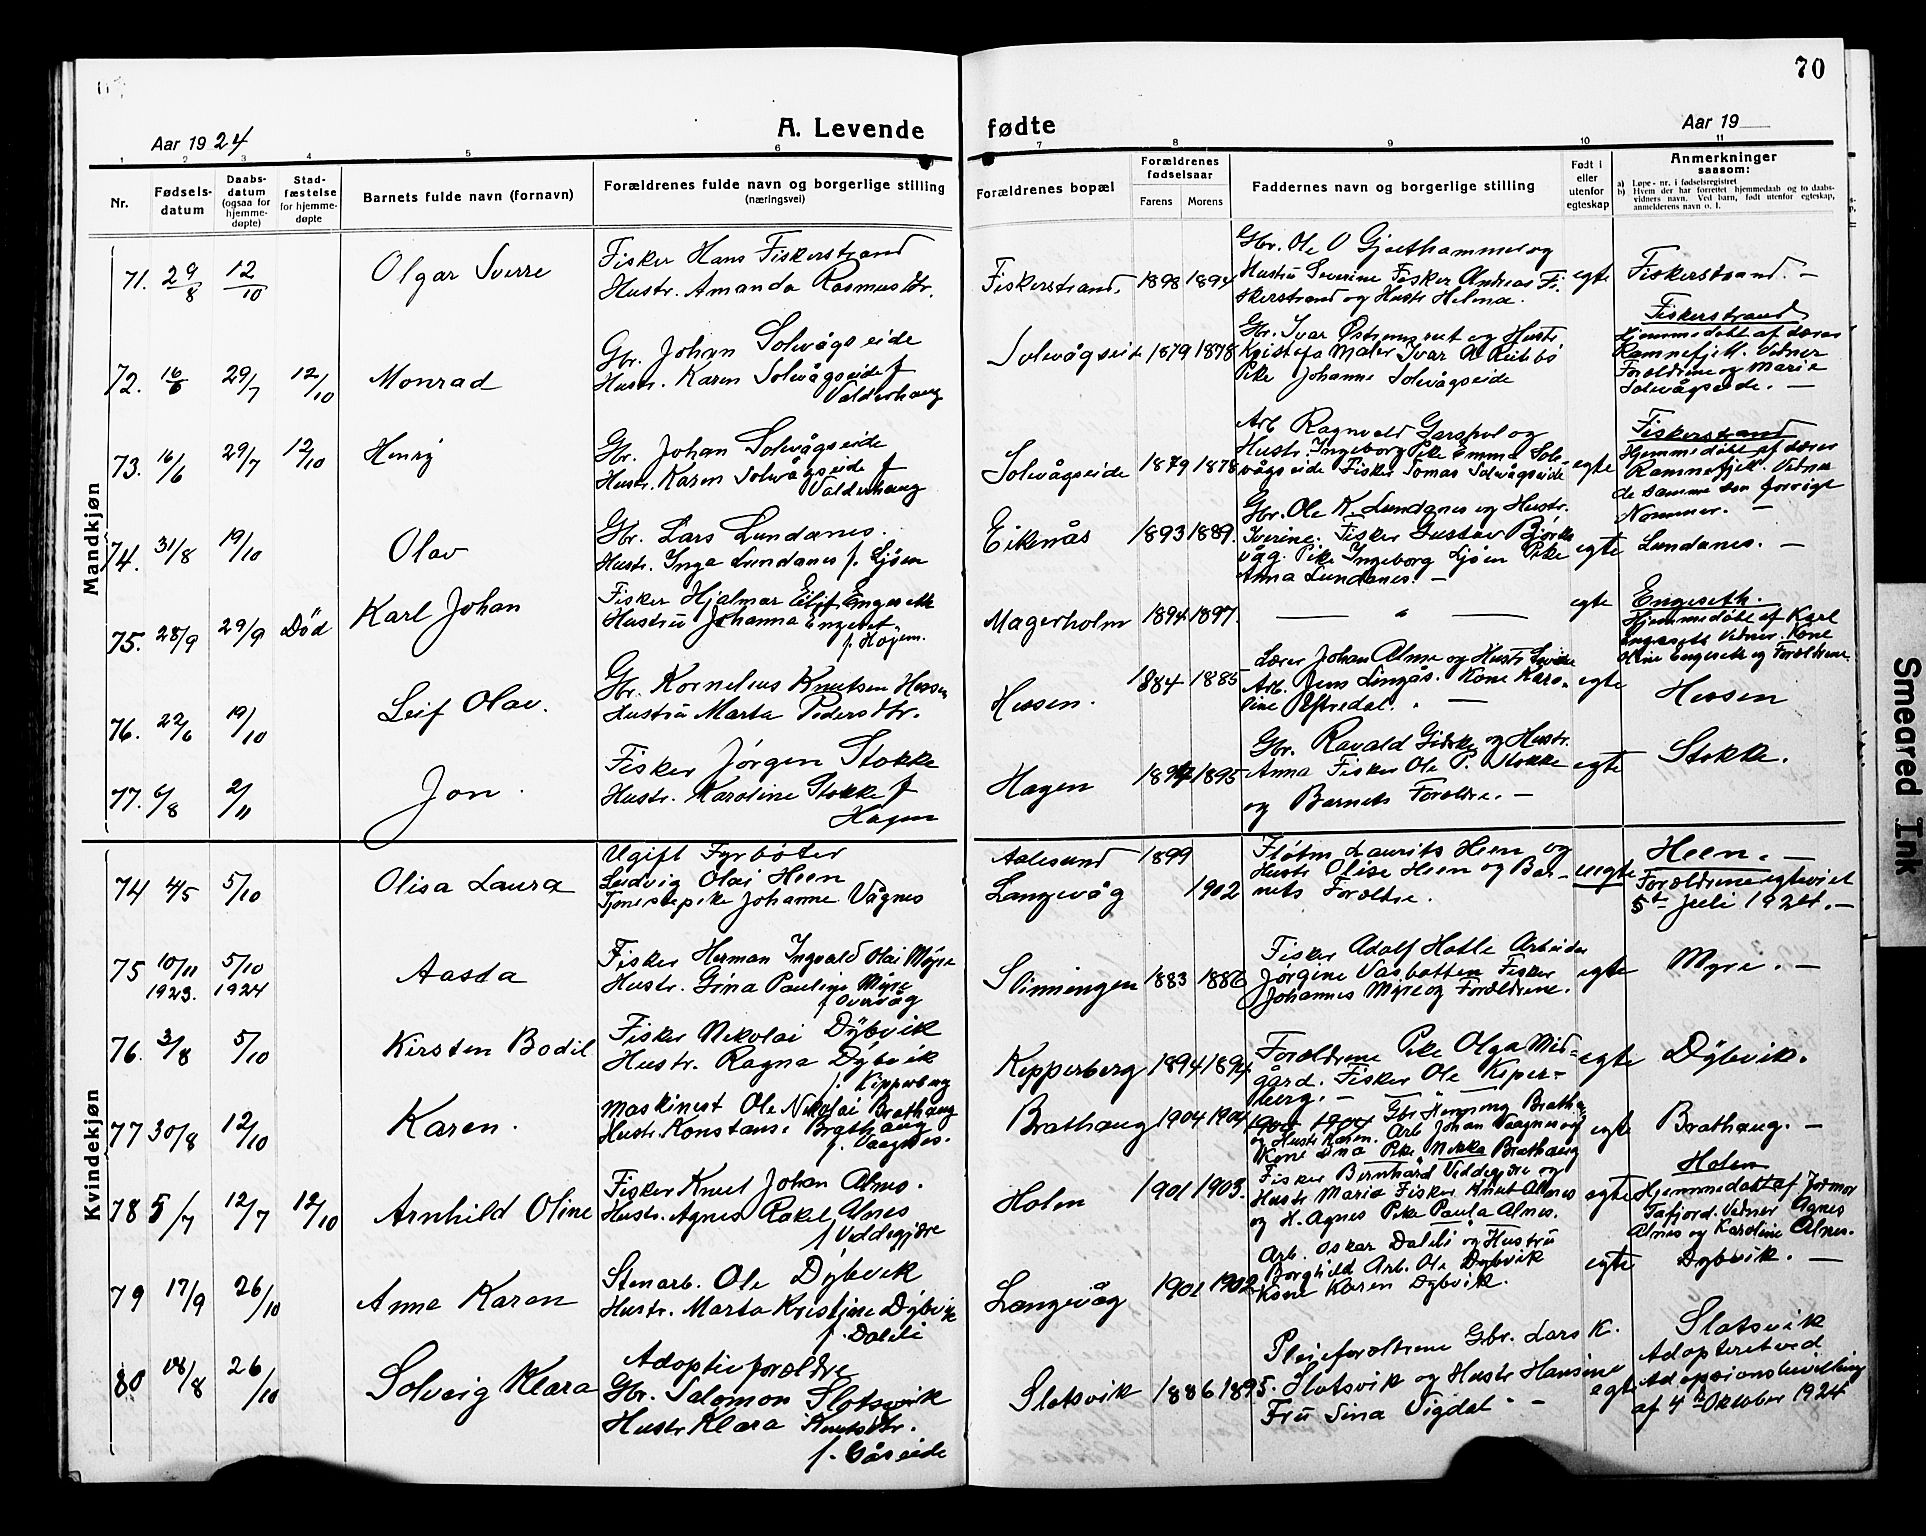 70
Aar 1924
A. Levende
fødte
Aar 19
1 2 3 4 5 6 7 8 9 10 11
Nr.
Fødsels-
datum
Daabs-
datum
(ogsaa for
hjemme-
døpte)
Stad-
fæstelse
for hjemme-
døpte
Barnets fulde navn (fornavn)
Forældrenes fulde navn og borgerlige stilling
(næringsvei)
Forældrenes bopæl
Forældrenes
fødselsaar
Farens
Morens
Faddernes navn og borgerlige stilling
Født i
eller
utenfor
egteskap
Anmerkninger
saasom:
a) Løpe-nr. i fødselsregistret
b) Hvem der har forrettet hjemmedaab og to daabs-
vidners navn. Ved barn, født utenfor egteskap,
anmelderens navn o. l.
Mandkjøn
71. 29/8 12/10
Olgar Sverre
Fisker Hans Fiskerstrand
Hustr. Amanda Rasmusdtr.
Fiskerstrand. 1898 1894
Gbr. Ole O Gjethammer og
Hustru Severine Fisker Andreas Fi-
skerstrand og Hustr Helma.
egte
Fiskerstrand. –
72. 16/6 29/7 12/10
Monrad
Gbr. Johan Solvågseide
Hustr. Karen Solvågseide f
Valderhaug
Solvågseid 1879 1878
Gbr. Ivar og Hustr.
Ivar
Pike Johanne Solvågseide
Fiskerstrand
Hjemmedøbt af Lærer
Ramnefjell. Vidner
Forældrene og Marie
Solvågseide. –
73. 16/6 29/7 12/10
Henry
Gbr. Johan Solvågseide
Hustr. Karen Solvågseide f
Valderhaug
Solvågseide 1879 1878
Arb Ragnvald og
Hustr. Ingeborg Pike Emma Sol-
vågseide Fisker Tomas Solvågseide
egte
Fiskerstrand
Hjemmedøbt af Lærer
Ramnefjell. Vidner
de samme som forrige
Nommer. –
74. 31/8 19/10
Olav
Gbr. Lars Lundanes.
Hustr. Inga Lundanes f. Ljøen
Eikenås 1893 1889.
Gbr. Ole K. Lundanes og Hustr.
Iverine. Fisker Gustav Bjørke
våg. Pike Ingeborg Ljøen Pike
Anna Lundanes. –
egte
Lundanes. –
75. 28/9 29/9 Død
Karl Johan
Fisker Hjalmar Eilif Engeseth
Hustru Johanna Engeset
f. Høgem.
Magerholm 1894 1897.
— " —
egte
Engeseth.
Hjemmedøbt af Karl
Engesethe Vidner. Kone
Oline Engeseth og Forældrene.
76. 22/6 19/10
Leif Olav.
Gbr. Kornelius Knutsen Hessen
Hustru Marta Pedersdtr.
Hessen. 1884 1885
Lærer Johan Alme og Hustr
Arb. Jens Lingås. Kone Karo-
line
egte
Hessen
77. 6/8 2/11
Jon.
Fisker Jørgen Stokke
Hustr. Karoline Stokke f
Hagen
Hagen 1895
Gbr. Ravald Giske og Hustr.
Anna Fisker Ole P. Stokke
og Barnets Forældre. –
egte
Stokke.
Kvindekjøn
74 4/5 5/10
Olisa Laura
Ugift Fyrbøter
Ludvig Olai Heen
Tjenestepike Johanne Vågnes
Aalesund 1899
Langevåg 1902
Fløtm Laurits Heen og
Hustr Olise Heen og Bar-
nets Forældre.
uegte
Heen. –
Forældrene egteviet
5te Juli 1924. –
75 10/11 1923. 5/10 1924
Aasta
Fisker Herman Ingvald Olai Myre
Hustr. Gina Pauline Myre
f Overvåg
Slinningen 1883 1886
Fisker Adolf Hatle Arbeider
Jørgine Vasbotten Fisker
Johannes Myre og Forældrene.
egte
Myre. –
76. 3/8 5/10
Kirsten Bodil
Fisker Nikolai Dybvik
Hustr. Ragna Dybvik
f. Kipperberg
Kipperberg 1894 1894
Forældrene Pike Olga Mid-
gård. Fisker Ole Kiper-
berg. –
egte
Dybvik.
77 30/8 12/10
Karen.
Maskinest Ole Nikolai Brathaug
Hustr. Konstanse Brathaug
f. Vaagnes.
Brathaug 1904 1904
1904 1904 Gbr Henning Brath-
og Hustr Karen. Arb Johan Vaagnes og
Kone Ena Pike Nikka Brathaug
egte
Brathaug. –
78 5/7 12/7 12/10
Arnhild Oline
Fisker Knut Johan Alnes.
Hustr. Agnes Rakel Alnes
f Viddegjøre
Holen 1901 1903.
Fisker Bernhard Viddegjøre og
Hustr Maria Fisker Knut Alnes
og H. Agnes Pike Paula Alnes.
egte
Holen
Hjemmedøbt af Jormor
Tafjord. Vidner Agnes
Alnes og Karoline Alnes.
79 17/9 26/10
Anna Karen
Stenarb. Ole Dybvik
Hustr. Marta Kristine Dybvik
f. Dalsli
Langevåg 1901 1902
Arb. Oskar Dalsli og Hustru
Borghild Arb. Ole Dybvik
Kone Karen Dybvik.
egte
Dybvik. –
80 /8 26/10
Solveig Klara
Adoptivforældre
Gbr. Salomon Slotsvik
Hustr Klara Knutsdtr.
f. Gåseide
Slotsvik 1886 1895.
Pleieforældrene Gbr. Lars K.
Slotsvik og Hustr Hansine
Fru Sina Vigdal. –
egte
Slotsvik
Adopteret ved
Adopsionsbevilling
af 4de Oktober 1924
Smeared Ink